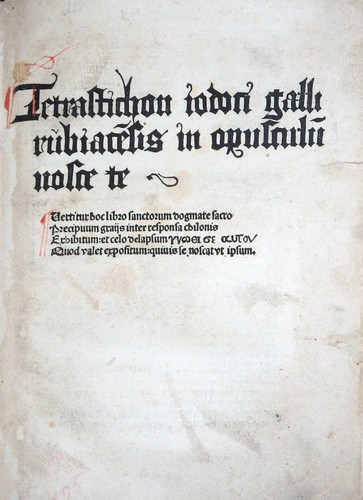 Tetrastichon iodoci galli
rūbiacēsis in opusculū
nosce te
¶ Vertitur hoc libro sanctorum dogmate sacro
Precipuum graijs inter responsa chilonis
Exhibitum: et celo delapsum γνωθι σε αυτον
Quod valet expositum: quiuis se noscat vt ipsum.